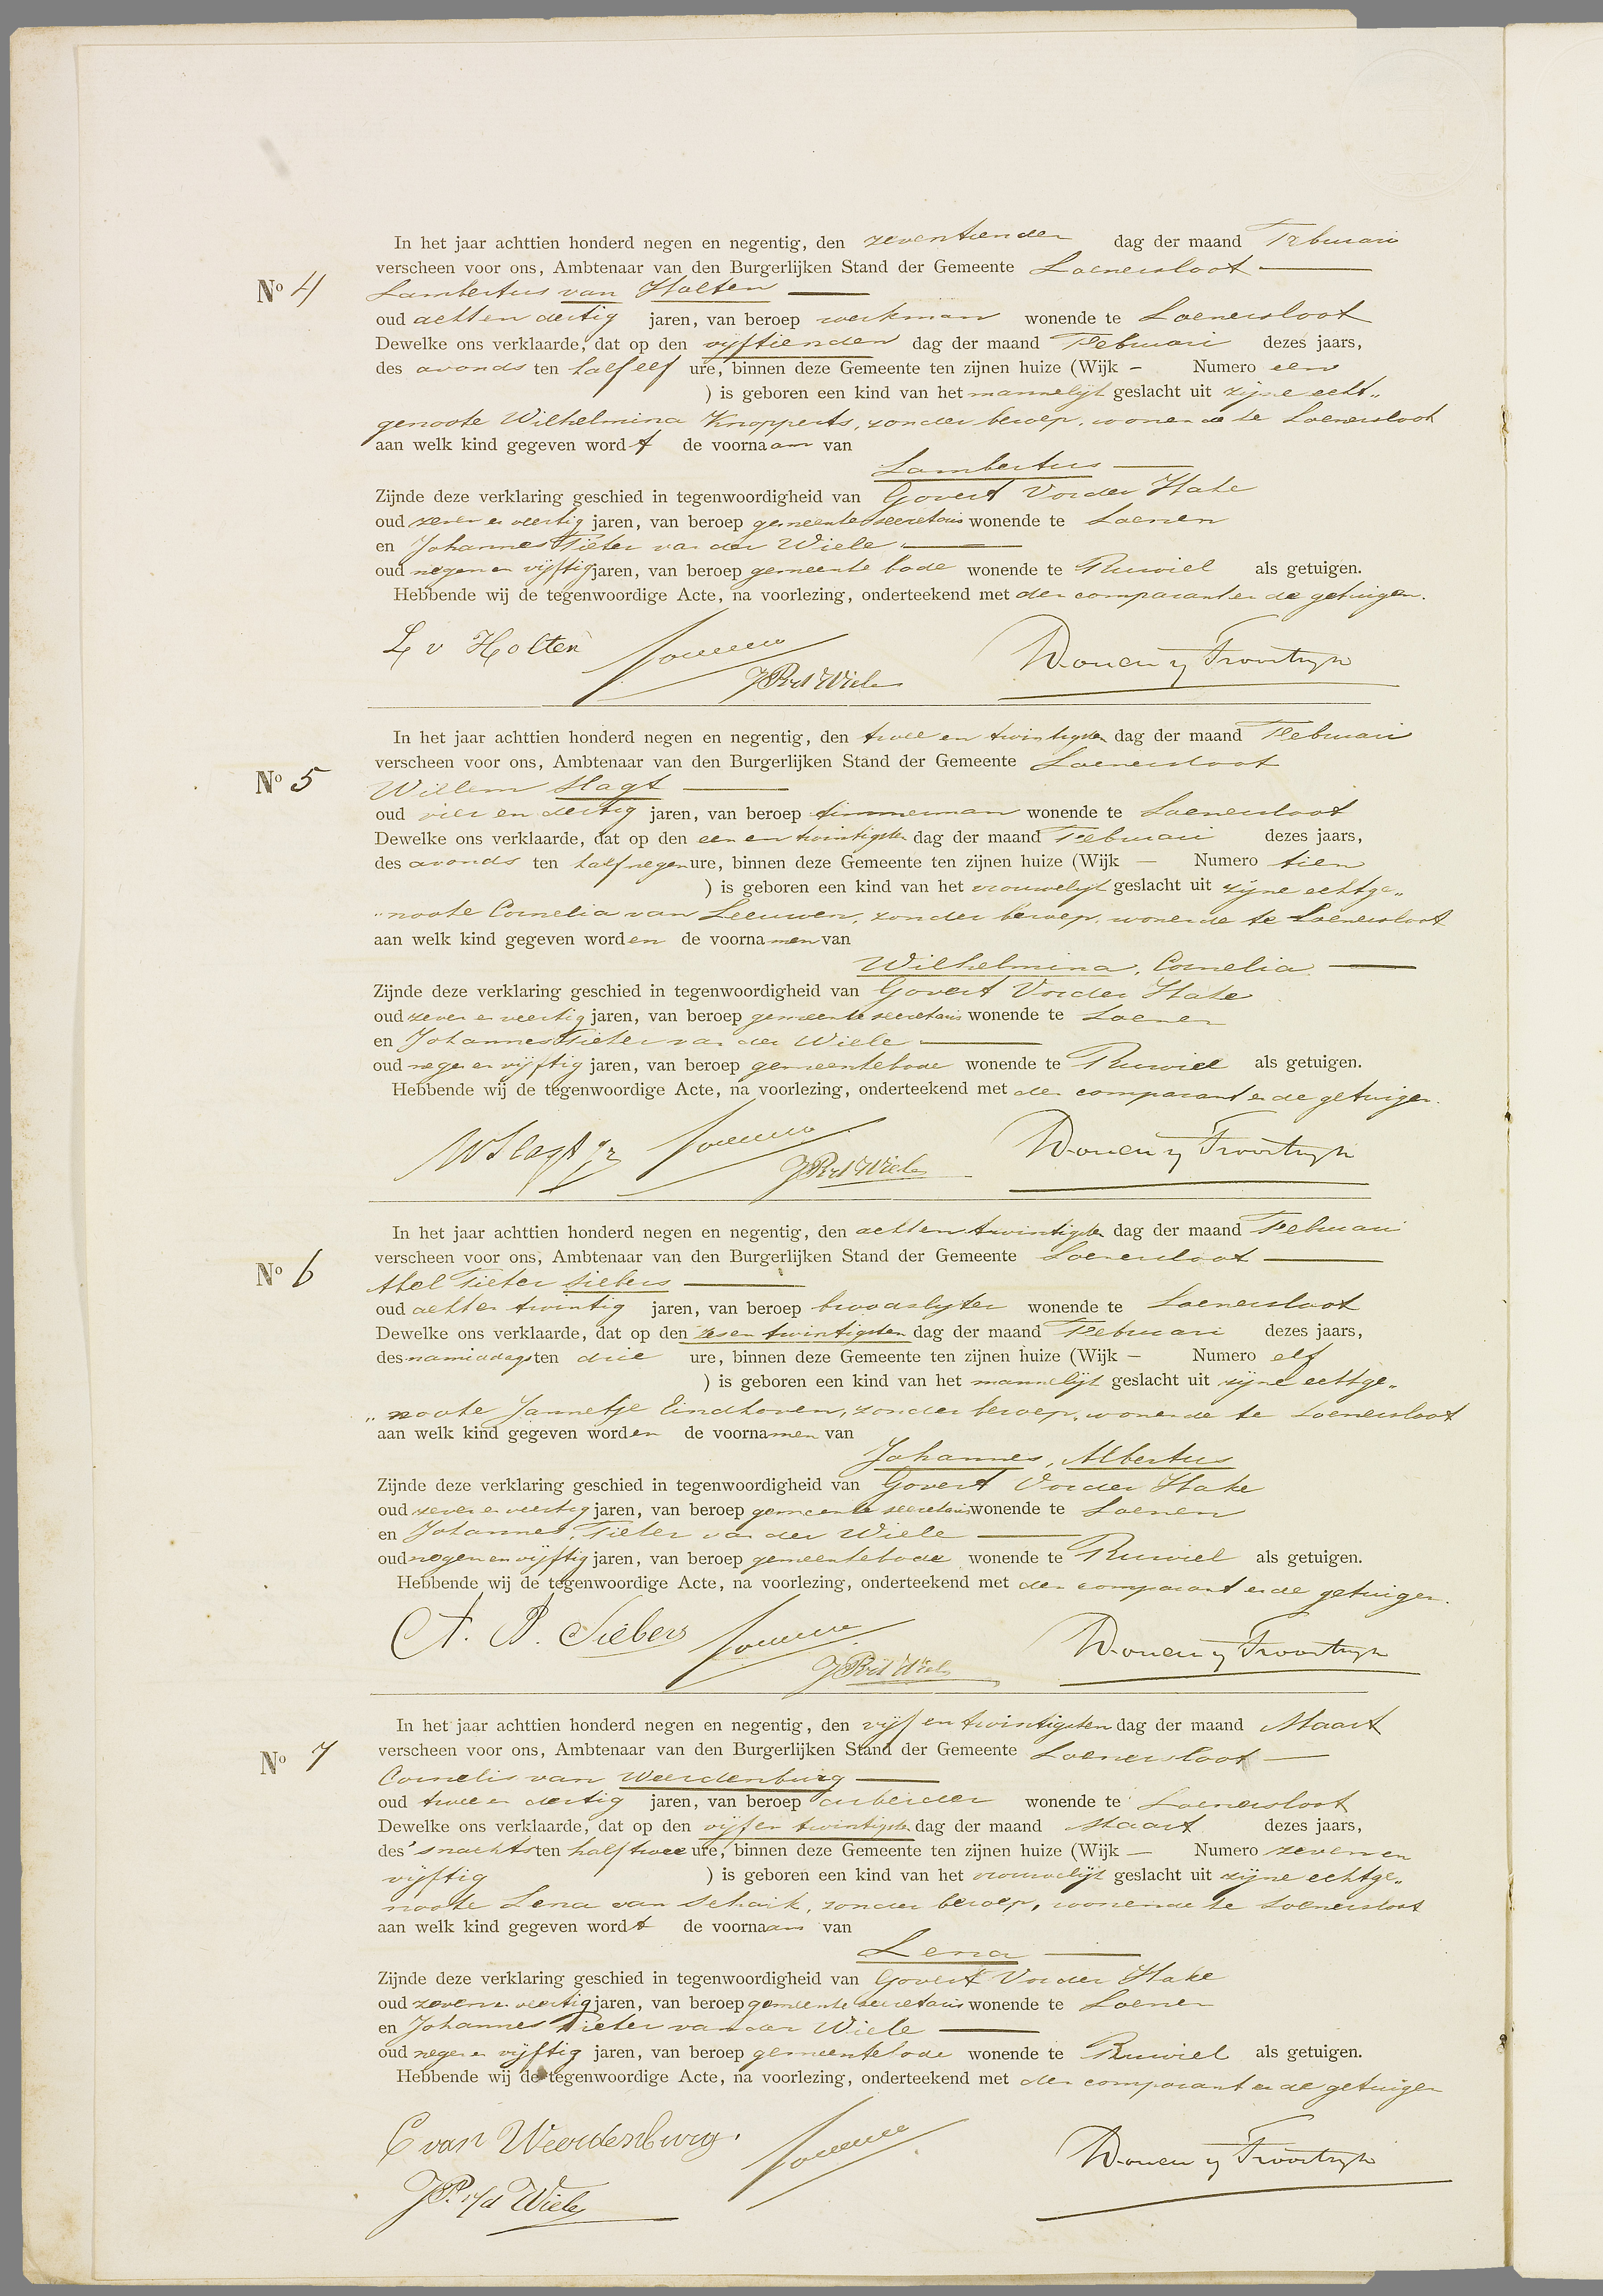 In het jaar achttien honderd negen en negentig, den zeventienden dag der maand Februari
verscheen voor ons, Ambtenaar van den Burgerlijken Stand der Gemeente Loenersloot
No 4 Lambertus van Holten
oud acht en dertig jaren, van beroep werkman wonende te Loenersloot
Dewelke ons verklaarde, dat op den vijftienden dag der maand Februari dezes jaars,
des avonds ten half elf ure, binnen deze Gemeente ten zijnen huize (Wijk – Numero een
) is geboren een kind van het mannelijk geslacht uit zijne echt„
genoote Wilhelmina Knopperts, zonder beroep, wonende te Loenersloot
aan welk kind gegeven wordt de voornaam van
Lambertus
Zijnde deze verklaring geschied in tegenwoordigheid van Govert Vorder Hake
oud zeven en veertig jaren, van beroep gemeente secretaris wonende te Loenen
en Johannes Pieter van der Wiele
oud negen en vijftig jaren, van beroep gemeente bode wonende te Ruwiel als getuigen.
Hebbende wij de tegenwoordige Acte, na voorlezing, onderteekend met den comparant en de getuigen.
L v Holten
JP vd Wiele
In het jaar achttien honderd negen en negentig, den twee en twintigsten dag der maand Februari
verscheen voor ons, Ambtenaar van den Burgerlijken Stand der Gemeente Loenersloot
No 5 Willem Slagt
oud vier en dertig jaren, van beroep timmerman wonende te Loenersloot
Dewelke ons verklaarde, dat op den een en twintigsten dag der maand Februari dezes jaars,
des avonds ten half negen ure, binnen deze Gemeente ten zijnen huize (Wijk — Numero tien
) is geboren een kind van het vrouwelijk geslacht uit zijne echtge„
„noote Cornelia van Leeuwen, zonder beroep, wonende te Loenersloot
aan welk kind gegeven worden de voornamen van
Wilhelmina, Cornelia
Zijnde deze verklaring geschied in tegenwoordigheid van Govert Vorder Hake
oud zeven en veertig jaren, van beroep gemeente secretaris wonende te Loenen
en Johannes Pieter van der Wiele
oud negen en vijftig jaren, van beroep gemeentebode wonende te Ruwiel als getuigen.
Hebbende wij de tegenwoordige Acte, na voorlezing, onderteekend met den comparant en de getuigen.
W Slagt jr
JP vd Wiele
In het jaar achttien honderd negen en negentig, den acht en twintigsten dag der maand Februari
verscheen voor ons, Ambtenaar van den Burgerlijken Stand der Gemeente Loenersloot
No 6 Abel Pieter Siebers
oud acht en twintig jaren, van beroep broodslijter wonende te Loenersloot
Dewelke ons verklaarde, dat op den zes en twintigsten dag der maand Februari dezes jaars,
des namiddags ten drie ure, binnen deze Gemeente ten zijnen huize (Wijk – Numero elf
) is geboren een kind van het mannelijk geslacht uit zijne echtge„
„noote Jannetje Eindhoven, zonder beroep, wonende te Loenersloot
aan welk kind gegeven worden de voornamen van
Johannes, Albertus
Zijnde deze verklaring geschied in tegenwoordigheid van Govert Vorder Hake
oud zeven en veertig jaren, van beroep gemeente secretaris wonende te Loenen
en Johannes Pieter van der Wiele
oud negen en vijftig jaren, van beroep gemeentebode wonende te Ruwiel als getuigen.
Hebbende wij de tegenwoordige Acte, na voorlezing, onderteekend met den comparant en de getuigen.
A. P. Siebers
JP vd Wiele
In het jaar achttien honderd negen en negentig, den vijf en twintigsten dag der maand Maart
verscheen voor ons, Ambtenaar van den Burgerlijken Stand der Gemeente Loenersloot
No 7 Cornelis van Weerdenburg
oud twee en dertig jaren, van beroep arbeider wonende te Loenersloot
Dewelke ons verklaarde, dat op den vijf en twintigsten dag der maand Maart dezes jaars,
des 's nachts ten half twee ure, binnen deze Gemeente ten zijnen huize (Wijk — Numero zeven en
vijftig ) is geboren een kind van het vrouwelijk geslacht uit zijne echtge„
noote Lena van Schaik, zonder beroep, wonende te Loenersloot
aan welk kind gegeven wordt de voornaam van
Lena
Zijnde deze verklaring geschied in tegenwoordigheid van Govert Vorder Hake
oud zeven en veertig jaren, van beroep gemeente secretaris wonende te Loenen
en Johannes Pieter van der Wiele
oud negen en vijftig jaren, van beroep gemeentebode wonende te Ruwiel als getuigen.
Hebbende wij de tegenwoordige Acte, na voorlezing, onderteekend met den comparant en de getuigen
C van Weerdenburg.
JP v/d Wiele